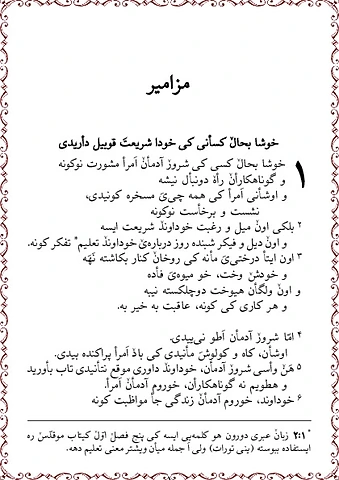 مزامیر
خوشا بحالˇ کسأنی کی خودا شریعتˇ قوبیل دأریدی
۱ خوشا بحالˇ کسی کی شرورˇ آدمأنˇ اَمرأ مشورت نوکونه
و گوناهکارأنˇ رأهˇ دونبألˇ نیشه
و اوشأنی اَمرأ کی همه چیˇ مسخره کونیدی،
نشست و برخأست نوکونه
۲ بلکی اونˇ میل و رغبت خوداوندˇ شریعت ایسه
و اونˇ دیل و فیکر شبنده روز دربارهˇ خوداوندˇ تعلیم* تفکر کونه.
۳ اون ایتأ درختیˇ مأنه کی روخأنˇ کنار بکاشته نَهَه
و خودشˇ وخت، خو میوهˇ فأده
و اونˇ ولگأن هیوخت دوچلکسته نیبه
و هر کاری کی کونه، عاقبت به خیر به.
۴ امّا شرورˇ آدمأن اَطو نی‌ییدی.
اوشأن، کاه و کولوشˇ مأنیدی کی بادˇ اَمرأ پراکنده بیدی.
۵ هَنˇ وأسی شرورˇ آدمأن، خوداوندˇ داوری موقع نتأنیدی تاب بأورید
و هطویم نه گوناهکارأن، خورومˇ آدمأنˇ اَمرأ.
۶ خوداوند، خورومˇ آدمأنˇ زندگی جأ مواظبت کونه
* ۲:۱ زبانˇ عبری دورون هو کلمه‌یی ایسه کی پنج فصلˇ اوّلˇ کیتاب موقدّسˇ ره
ایستفاده ببوسته (ینی تورات) ولی اَ جمله میأن ویشتر معنی تعلیم دهه.